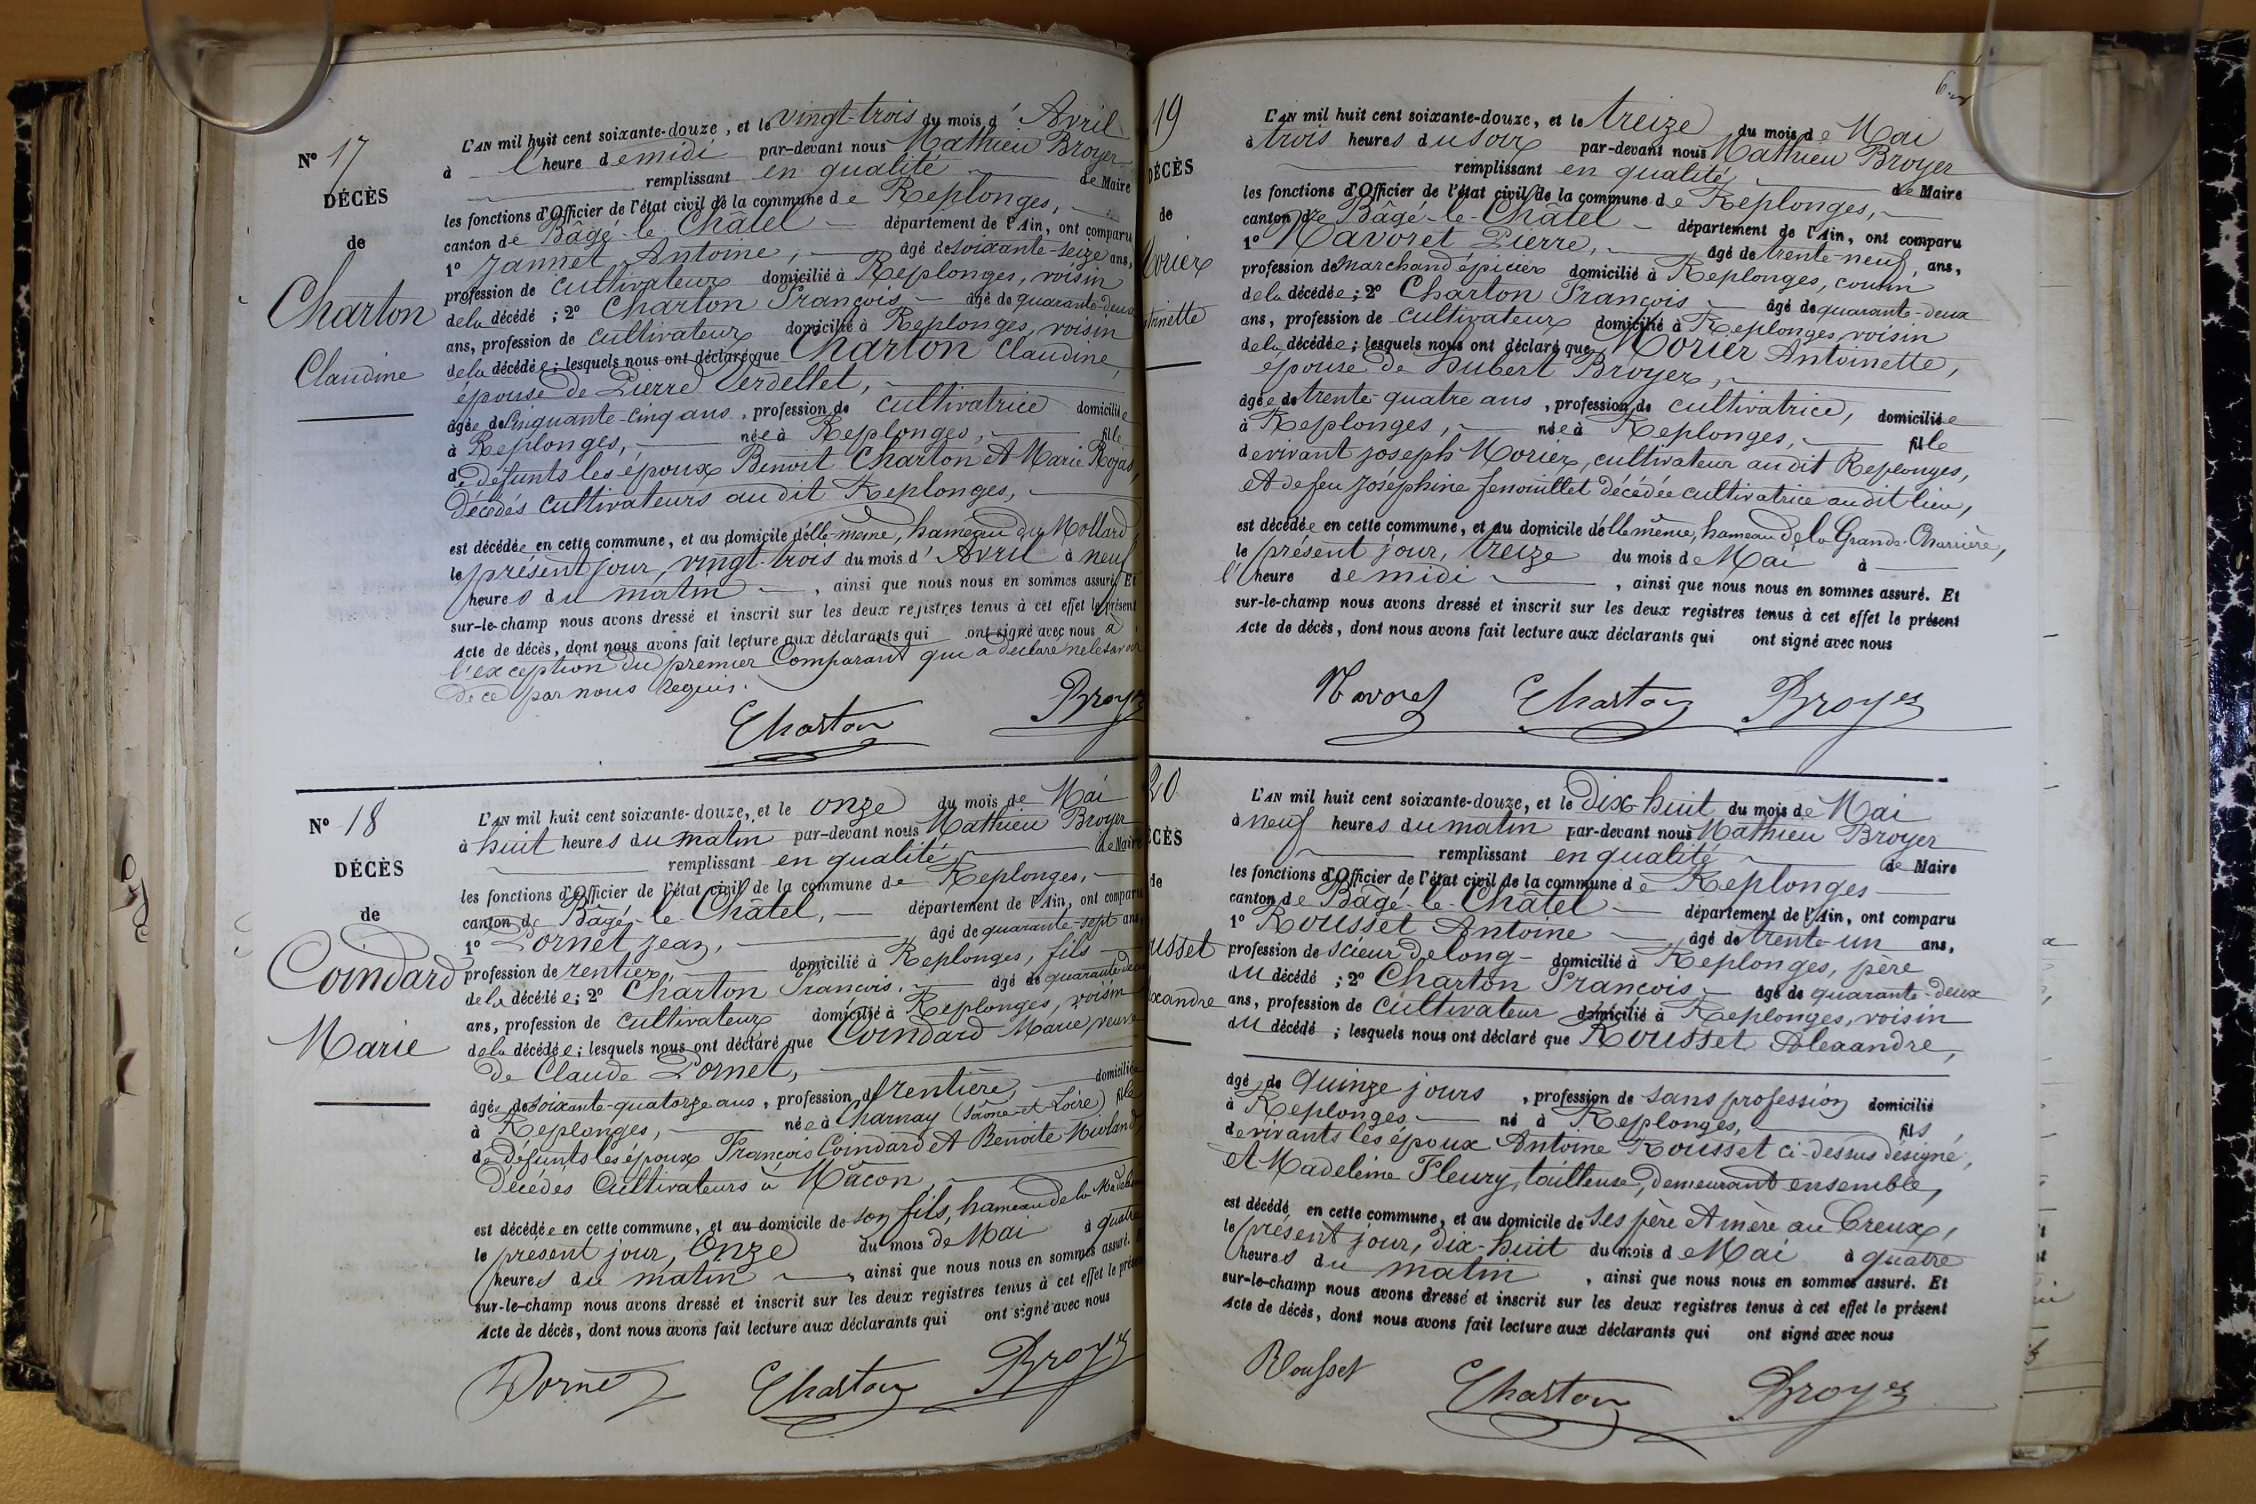 N° 17
DÉCÈS
de
Charton
Claudine
L'AN mil huit cent soixante-douze, et le vingt-trois du mois d' Avril
à l' heure de midi par-devant nous Mathieu Broyer
remplissant en qualité de Maire
les fonctions d'Officier de l'état civil de la commune de Replonges,
canton de Bâgé-le-Châtel département de l'Ain, ont comparu
1° Jannet Antoine, âgé de soixante-seize ans,
profession de cultivateur domicilié à Replonges, voisin
de la décédé ; 2° Charton François âgé de quarante-deux
ans, profession de cultivateur domicilié à Replonges, voisin
de la décédée ; lesquels nous ont déclaré que Charton Claudine,
épouse de Pierre Verdellet,
âgée de cinquante-cinq ans, profession de cultivatrice domiciliée
à Replonges, née à Replonges, fille
de défunts les époux Benoit Charton et Marie
décédés cultivateurs audit Replonges,
est décédée en cette commune, et au domicile d'elle-même, hameau du Mollard
le présent jour, vingt-trois du mois d' Avril à neuf
heures du matin, ainsi que nous nous en sommes assuré. Et
sur-le-champ nous avons dressé et inscrit sur les deux registres tenus à cet effet le présent
Acte de décès, dont nous avons fait lecture aux déclarants qui ont signé avec nous à
l'exception du premier Comparant qui a déclaré ne le savoir
de ce par nous Requis.
Charton Broyer
N° 18
DÉCÈS
de
Coindard
Marie
L'AN mil huit cent soixante-douze, et le onze du mois de Mai
à huit heures du matin par-devant nous Mathieu Broyer
remplissant en qualité de Maire
les fonctions d'Officier de l'état civil de la commune de Replonges,
canton de Bâgé-le-Châtel, département de l'Ain, ont comparu
1° Dornet Jean, âgé de quarante-sept ans,
profession de rentier, domicilié à Replonges, fils
de la décédée ; 2° Charton François, âgé de quarante-deux
ans, profession de cultivateur domicilié à Replonges, voisin
de la décédée ; lesquels nous ont déclaré que Coindard Marie, veuve
de Claude Dornet,
âgée de soixante-quatorze ans, profession de rentière domiciliée
à Replonges, née à Charnay (Saône-et-Loire) fille
de défunts les époux François Coindard et Benoite
décédés Cultivateurs à Mâcon,
est décédée en cette commune, et au domicile de son fils, hameau de la
le présent jour, Onze du mois de Mai à quatre
heures du matin, ainsi que nous nous en sommes assuré. Et
sur-le-champ nous avons dressé et inscrit sur les deux registres tenus à cet effet le présent
Acte de décès, dont nous avons fait lecture aux déclarants qui ont signé avec nous
Dornet Charton Broyer
19
DÉCÈS
de
Morier
L'AN mil huit cent soixante-douze, et le treize du mois de Mai
à trois heures du soir par-devant nous Mathieu Broyer
remplissant en qualité de Maire
les fonctions d'Officier de l'état civil de la commune de Replonges,
canton de Bâgé-le-Châtel département de l'Ain, ont comparu
1° Navoret Pierre, âgé de trente-neuf ans,
profession de Marchand épicier domicilié à Replonges, cousin
de la décédée ; 2° Charton François âgé de quarante-deux
ans, profession de cultivateur domicilié à Replonges voisin
de la décédée ; lesquels nous ont déclaré que Morier Antoinette,
épouse de Hubert Broyer,
âgée de trente-quatre ans, profession de cultivatrice, domiciliée
à Replonges, née à Replonges, fille
de vivant Joseph Morier, cultivateur audit Replonges,
et de feu Joséphine Fenouillet décédée cultivatrice audit lieu,
est décédée en cette commune, et au domicile d'elle même, hameau de la Grande Charrière,
le présent jour, treize du mois de Mai à
l' heure de midi, ainsi que nous nous en sommes assuré. Et
sur-le-champ nous avons dressé et inscrit sur les deux registres tenus à cet effet le présent
Acte de décès, dont nous avons fait lecture aux déclarants qui ont signé avec nous
Navoret Charton Broyer
20
DÉCÈS
de
L'AN mil huit cent soixante-douze, et le dix-huit du mois de Mai
à neuf heures du matin par-devant nous Mathieu Broyer
remplissant en qualité de Maire
les fonctions d'Officier de l'état civil de la commune de Replonges
canton de Bâgé-le-Châtel département de l'Ain, ont comparu
1° Rousset Antoine âgé de trente-un ans,
profession de scieur de long domicilié à Replonges, père
du décédé ; 2° Charton François âgé de quarante-deux
ans, profession de cultivateur domicilié à Replonges, voisin
du décédé ; lesquels nous ont déclaré que Rousset Alexandre,
âgé de quinze jours, profession de sans profession domicilié
à Replonges né à Replonges, fils
de vivants les époux Antoine Rousset ci-dessus désigné,
et Madeleine Fleury, tailleuse, demeurant ensemble,
est décédé en cette commune, et au domicile de ses père et mère au Creux,
le présent jour, dix-huit du mois de Mai à quatre
heures du matin, ainsi que nous nous en sommes assuré. Et
sur-le-champ nous avons dressé et inscrit sur les deux registres tenus à cet effet le présent
Acte de décès, dont nous avons fait lecture aux déclarants qui ont signé avec nous
Rousset Charton Broyer